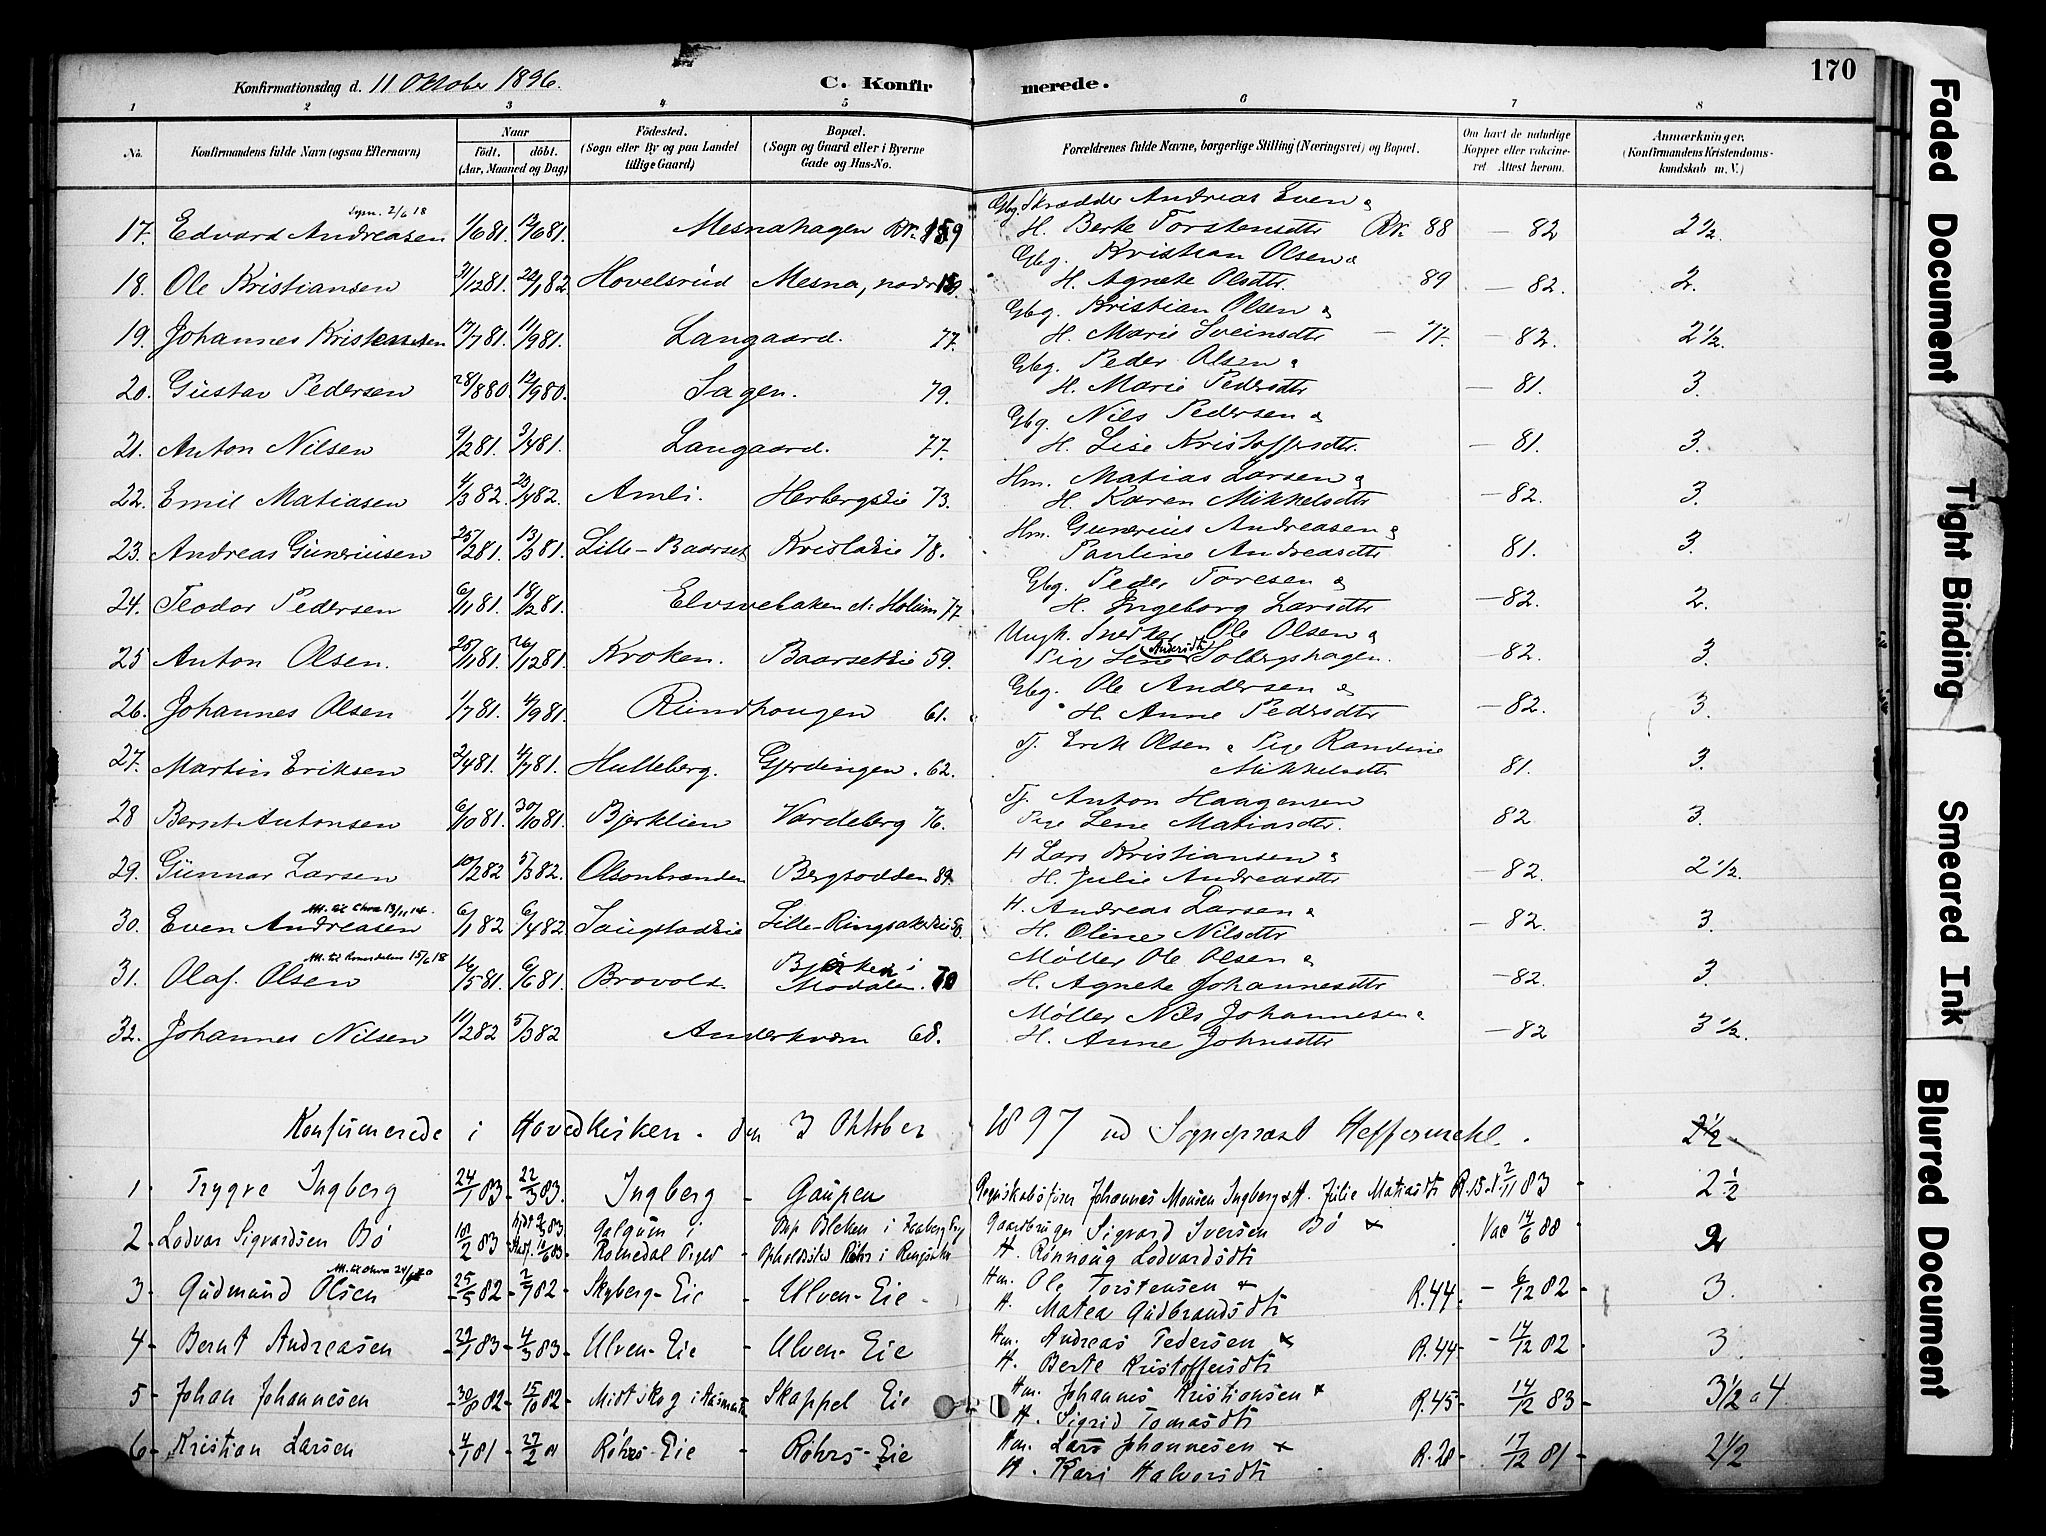 170
Konfirmationsdag d. 11 Oktober 1896. C. Konfirmerede.
1 2 3 4 5 6 7 8
No. Konfirmandens fulde Navn (ogsaa Efternavn) Naar födt. döbt. (Aar, Maaned og Dag) Födested. (Sogn eller By og paa Landet tillige Gaard) Bopæl. (Sogn og Gaard eller i Byerne Gade og Hus-No. Forældrenes fulde Navne, borgerlige Stilling (Næringsvei) og Bopæl. Om havt de naturlige Kopper eller vaccineret Attest herom. Anmærkninger. (Konfirmandens Kristendomskundskab m. V.)
17. Edvard Andreasen 1/6 81. 19/6 81. Mesnahagen 159 Gbg. Skrædder Andreas Even &
H. Berte Torstensdtr 88 – 82 2½.
18. Ole Kristiansen 31/12 81. 22/1 82 Hovelsrud Mesna, nordre 159. Gbg. Kristian Olsen &
H. Agnete Olsdtr. 89 – 82. 2.
19. Johannes Kristensen 17/7 81. 11/9 81. Langaard. 77. Gbg. Kristian Olsen &
H. Marie Sveinsdtr – 77. – 82. 2½.
20. Gustav Pedersen 28/8 80. 12/9 80. Sagen. 79. Gbg. Peder Olsen &
H. Marie Pedersdtr – 81. 3.
21. Anton Nilsen 9/2 81. 3/4 81. Langaard. 77. Gbg. Nils Pedersen &
H. Lise Kristoffersdtr. – 81. 3.
22. Emil Matiasen 4/3 82. 23/4 82. Amli. Herbergseie 73. Hm. Matias Larsen &
H. Karen Mikkelsdtr – 82. 3.
23. Andreas Guneriusen 25/2 81. 13/3 81. Lille-Baarset Krislaeie 78. Hm. Gunerius Andreasen &
Pauline Andreasdtr 81. 3.
24. Teodor Pedersen 6/11 81. 18/12 81. Elvsvebakken Holum 77. Gbg. Peder Toresen &
H. Ingeborg Larsdtr – 82. 2.
25 Anton Olsen. 25/11 81. 26/12 81. Kroken. Baarseteie 59. Ungk. Snedker Ole Olsen &
Pige Lene Andersdtr Solbergshagen. – 82. 3.
26. Johannes Olsen 1/7 81. 4/9 81. Rundhougen 61. Gbg. Ole Andersen &
H. Anne Pedersdtr – 82. 3.
27. Martin Eriksen 2/4 81. 4/7 81. Hulleberg. Gjerdingen. 62. Tj. Erik Olsen & Pige Randine
Mikkelsdtr 81. 3.
28 Bernt Antonsen 6/10 81. 30/10 81. Bjerklien Vardeberg 76. Tj. Anton Haagensen
Pige Lene Matiasdtr. 82 3.
29. Gunnar Larsen 10/2 82 5/3 82. Olsonbrænden Bergsodden 89. H Lars Kristiansen &
H. Julie Andreasdtr – 82. 2½.
30. Even Andreasen 6/1 82 6/4 82 Saugstadeie Lille-Ringsakereie H. Andreas Larsen &
H. Oline Nilsdtr – 82. 3.
31. Olaf. Olsen 16/5 81. 6/6 81. Brovold. Bjerken i Modalen. 70 Møller Ole Olsen &
H. Agnete Johannesdtr – 82. 3.
32. Johannes Nilsen 11/2 82 5/3 82 Anderkværn 68. Møller Nils Johannesen &
H. Anne Johnsdtr – 82 3½.
Konfirmerede i Hovedkirken den 3 Oktober 1897 ved Sogneprest Heffermehl. 2½
1 Trygve Ingberg 24/1 83 22/3 83. Ingberg Gaupen Regnskabsfører Johannes Monsen Ingberg & H. Julie Matiasdt R. 15 2/11 83 2½
2 Lodvar Sigvardsen Bö 18/2 83 Gaardbruger Sigvard Iversen Bö &
H. Rönnaug Lodvardsdt Vac 14/6 88 2
3 Gudmund Olsen 25/5 82 2/7 82 Skyberg-Eie Ulven-Eie Hm. Ole Torstensen &
H. Matea Gudbrandsdt R. 44 6/12 82 3.
4 Bernt Andreasen 29/1 83 4/3 83 Ulven-Eie Ulven-Eie Hm. Andreas Pedersen &
H. Berte Kristoffersdt R. 44 14/12 82 3
5 Johan Johannesen 30/8 82 15/10 82 Midtskog i Aasmark Skappel Eie Hm. Johannes Kristiansen &
H. Sigrid Tomasdt R. 45 14/12 83 3½ a 4
6 Kristian Larsen 4/1 81 27/2 81 Röhrs-Eie Röhrs-Eie Hm. Lars Johannesen &
H. Kari Halvorsdt R. 28 17/12 81 2½
Faded Document
Tight Binding
Smeared Ink
Blurred Document